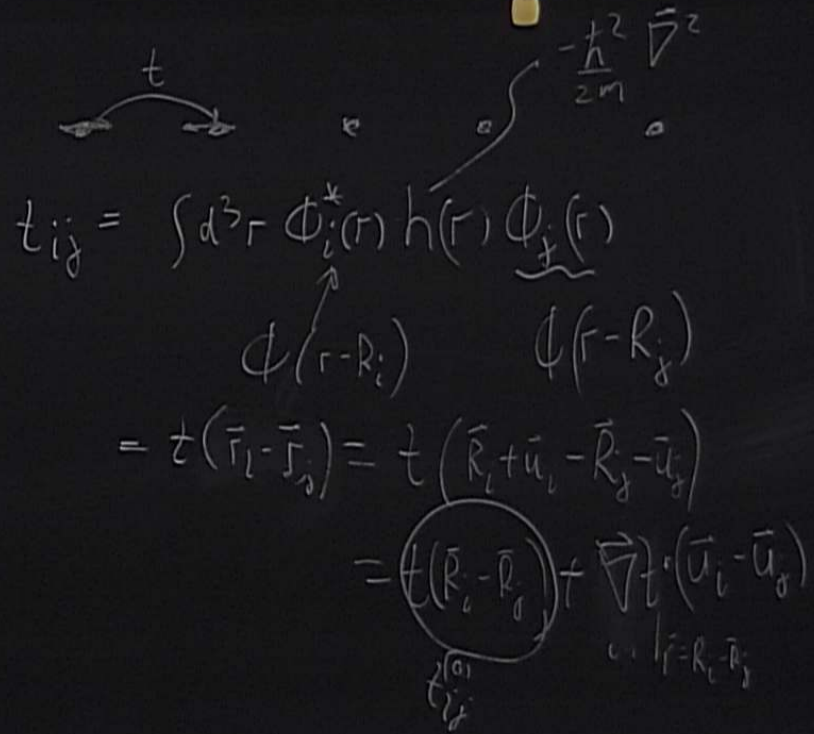 t
-ħ²/2m ∇⃗²
t_ij = ∫d³r ϕ_i*(r) h(r) ϕ_j(r)
ϕ(r-R_i) ϕ(r-R_j)
= t(r̄_i-r̄_j) = t(R̄_i+ū_i-R̄_j-ū_j)
= t(R̄_i-R̄_j) + ∇⃗t·(ū_i-ū_j)
|r̄=R_i-R_j
t_ij^(0)